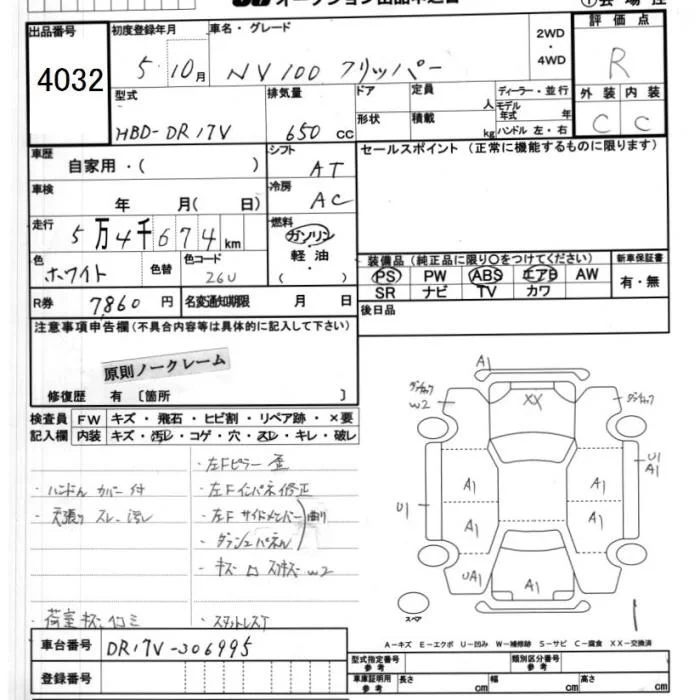 出品番号
4032
初度登録年月
5年 10月
車名・グレード
NV100 クリッパー
2WD
・
4WD
評価点
R
型式
HBD-DR17V
排気量
650 cc
ドア
定員
人
形状
積載
kg
ディーラー・並行
モデル年式 年
ハンドル 左・右
外装
内装
C
C
車歴
自家用・( )
シフト
AT
冷房
AC
セールスポイント (正常に機能するものに限ります)
車検
年 月( 日)
走行
5万4千674km
燃料
ガソリン
軽油
( )
色
ホワイト
色替
色コード
26U
装備品 (純正品に限り○をつけてください)
PS PW ABS エアB AW
SR ナビ TV カワ
新車保証書
有・無
R券
7,860 円
名変通知期限 月 日
後日品
注意事項申告欄(不具合内容等は具体的に記入して下さい)
原則ノークレーム
修復歴 有 〔箇所 〕
検査員
記入欄
FW キズ・飛石・ヒビ割・リペア跡・×要
内装 キズ・汚レ・コゲ・穴・スレ・キレ・破レ
・ハンドルカバー付
・天張り スレ、汚レ
荷室キズ凹コミ
・左Fピラー 歪
・左Fインパネ修正
・左Fサイドメンバー
・ダッシュパネル
曲り
・スタットレスT
A1
XX
W2
A1
A1
U1
A1
A1
U1
A1
UA1
A1
スペア
A-キズ E-エクボ U-凹み W-補修跡 S-サビ C-腐食 XX-交換済
車台番号
DR17V-306995
登録番号
型式指定番号
参考
類別区分番号
参考
車庫証明用
参考
長さ cm
幅 cm
高さ cm